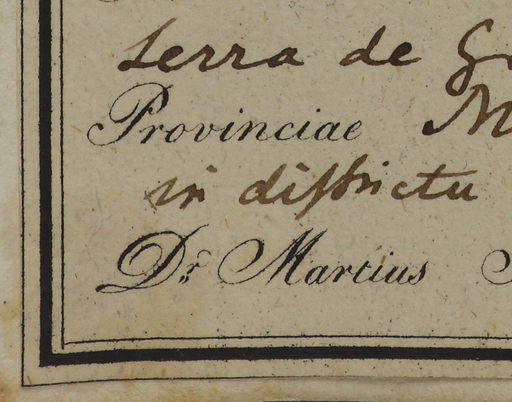 serra de
Provinciae
in districtu
Dr. Martius